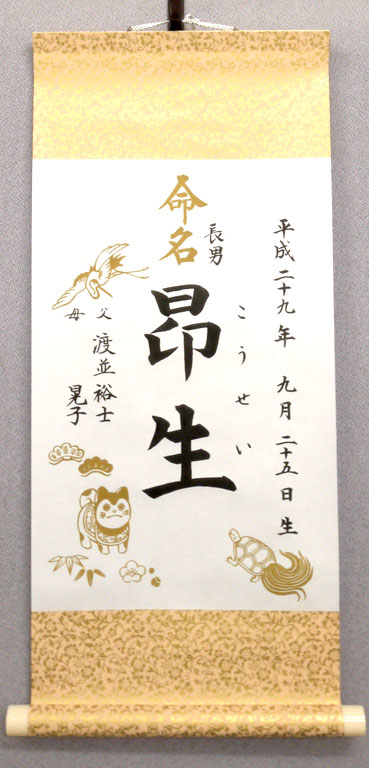 平成二十九年 九月二十五日生
こうせい
命名
長男
昂生
父 渡並裕士
母 晃子